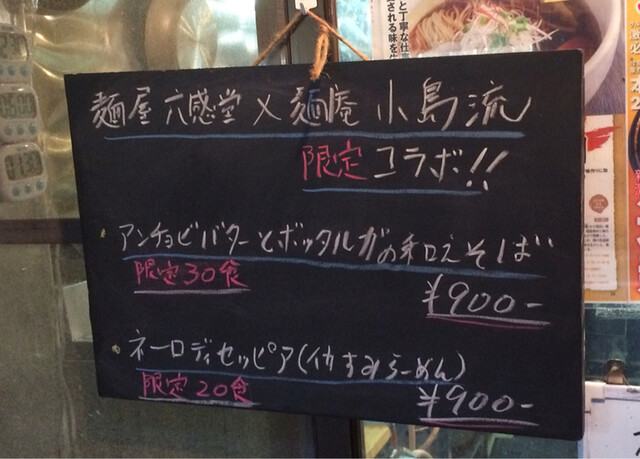 麺屋 六感堂 × 麺庵 小島流
限定 コラボ!!
・アンチョビバターとボッタルガの和えそば
限定30食
¥900-
・ネーロディセッピア(イカすみらーめん)
限定20食
¥900-
と丁寧な仕事
される味を